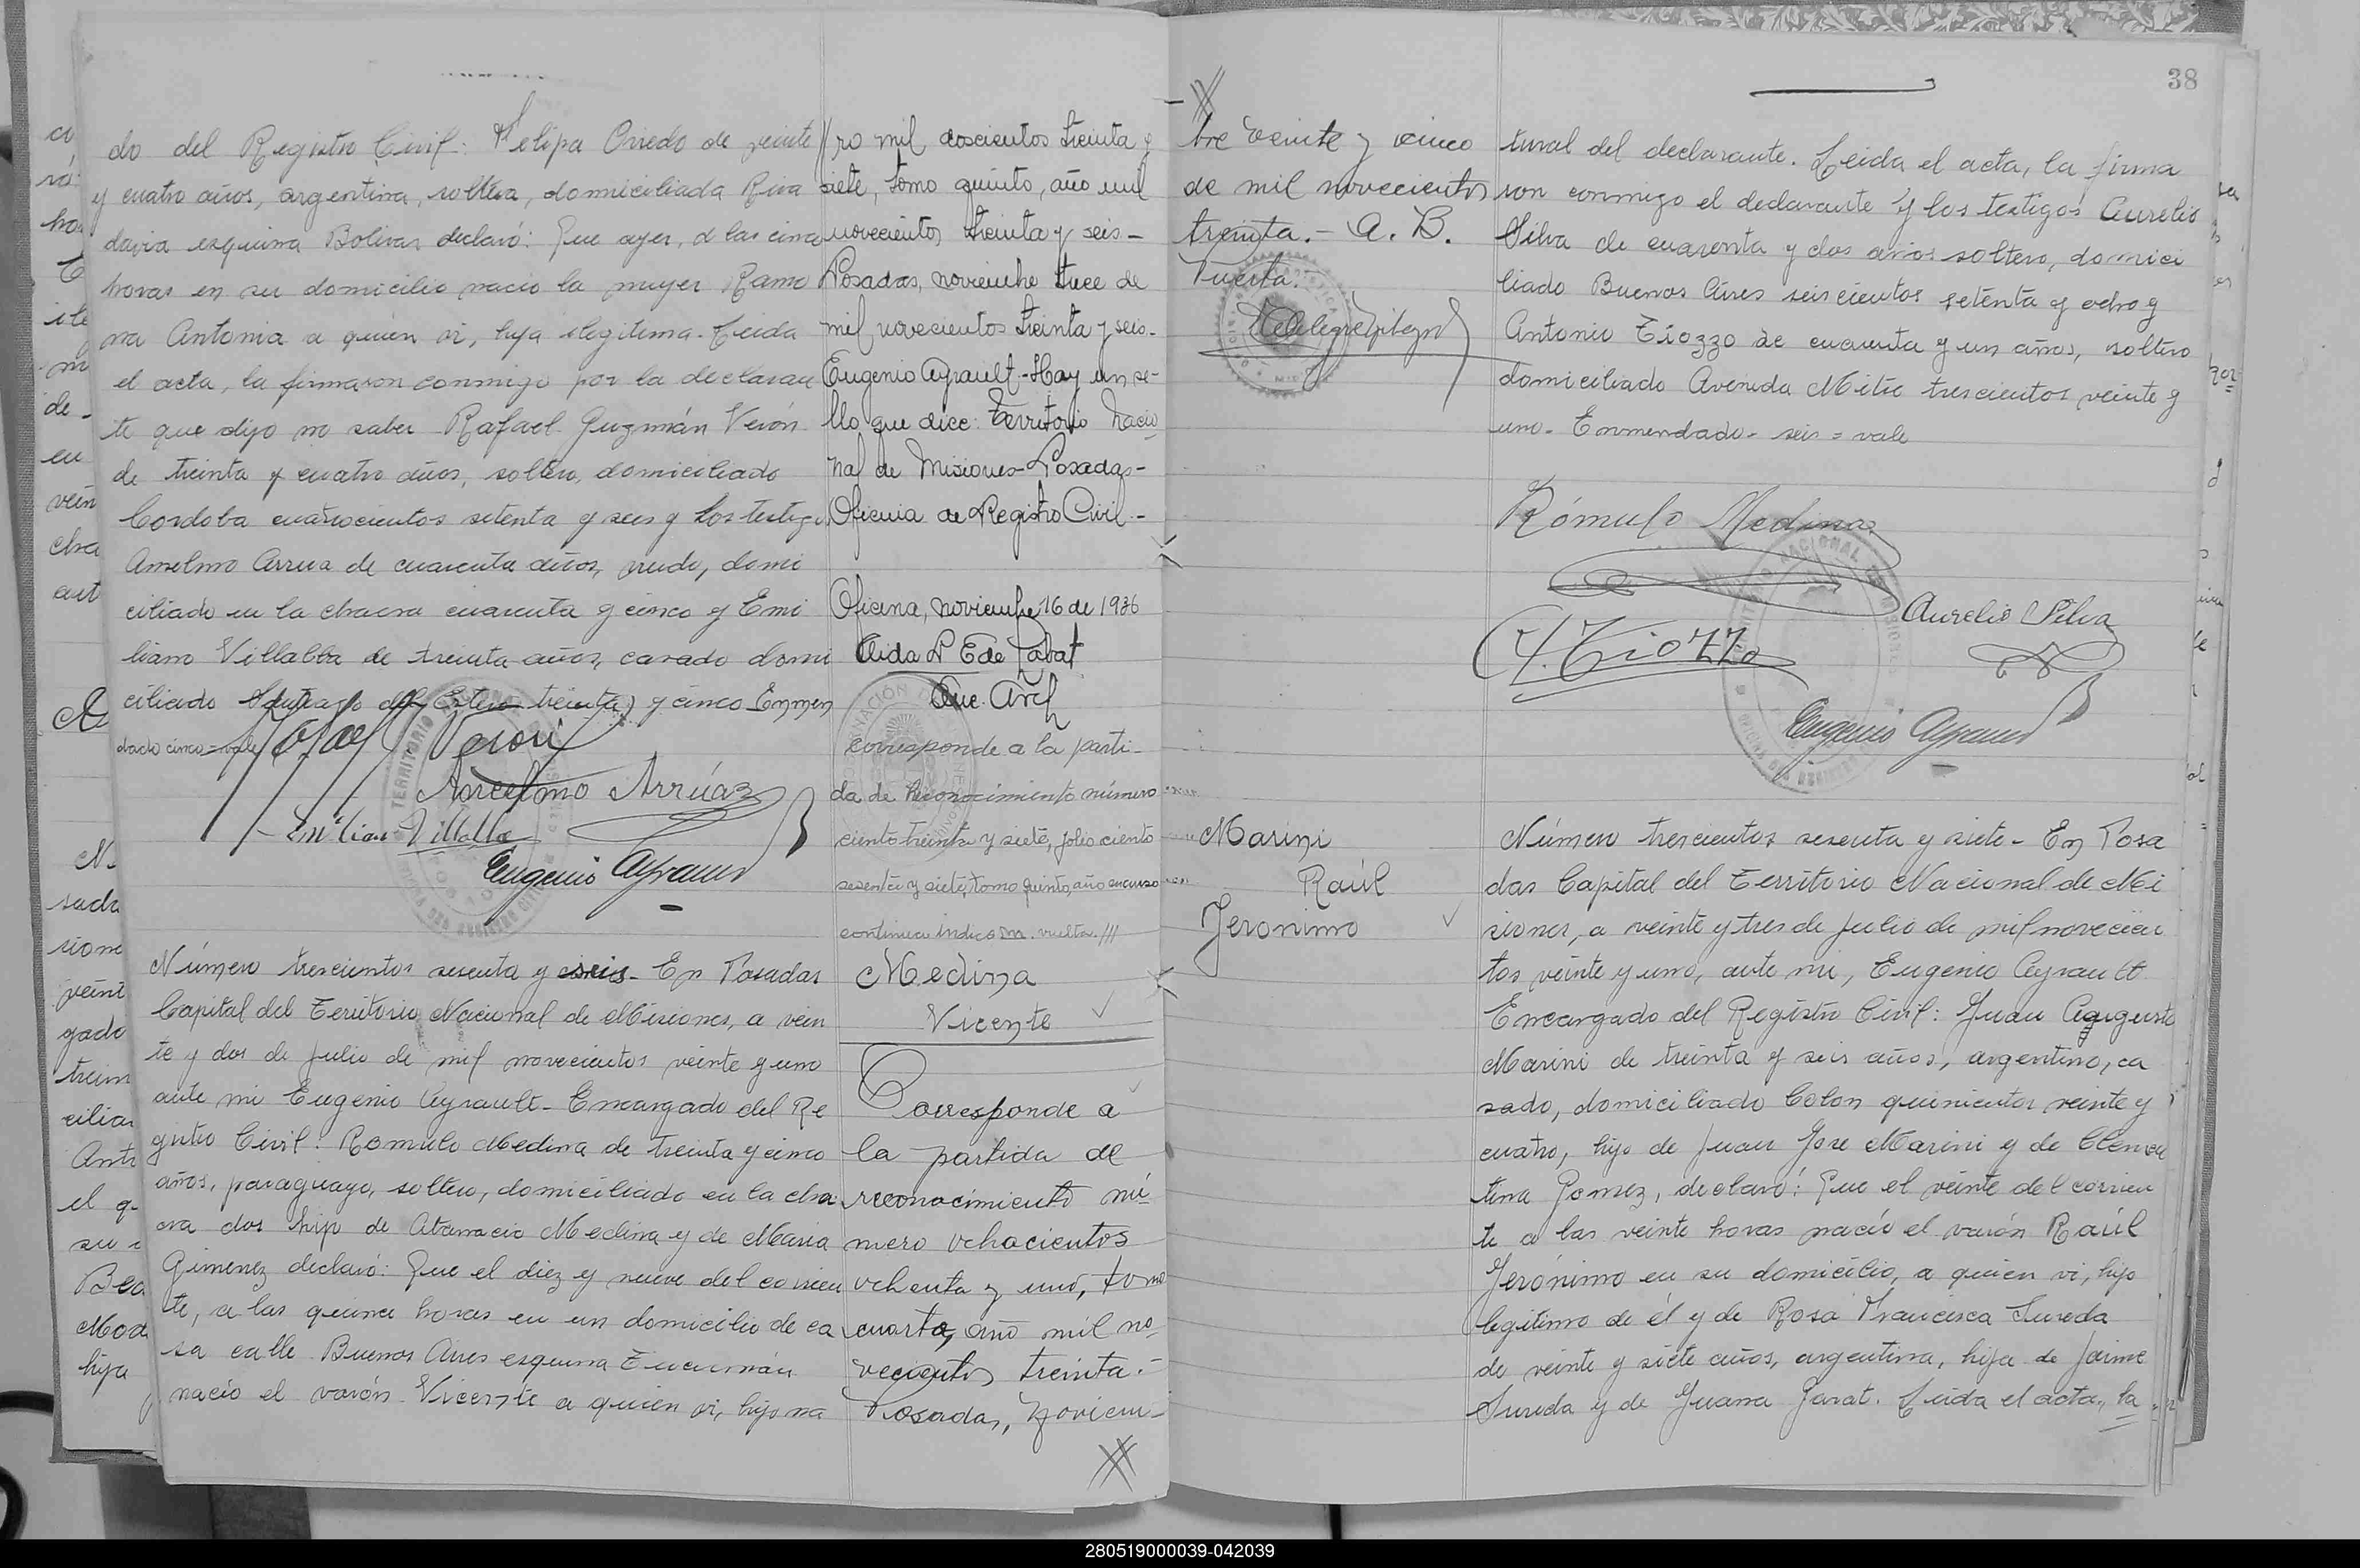 do del Registro Civil: Felipa Oviedo de veinte
y cuatro años, argentina, soltera, domiciliada Riva
davia esquina Bolivar declaró: Que ayer, a las cinco
horas en su domicilio nacio la mujer Ramo
na Antonia a quien vi, hija ilegitima. Leida
el acta, la firmaron conmigo por la declaran
te que dijo no saber Rafael Guzmán Verón
de treinta y cuatro años, soltero, domiciliado
Cordoba cuatrocientos setenta y seis y los testigos
Anselmo Arrua de cuarenta años, viudo, domi
ciliado en la chacra cuarenta y cinco y Emi
liano Villalba de treinta años, casado domi
ciliado Santiago del Estero treinta y cinco Enmen
dado cinco = vale
Anselmo Arrúa
Emilian Villalba
Eugenio Ayrault
Número trescientos sesenta y seis - En Posadas
Capital del Territorio Nacional de Misiones, a vein
te y dos de Julio de mil novecientos veinte y uno
ante mi Eugenio Ayrault - Encargado del Re
gistro Civil: Romulo Medina de treinta y cinco
años, paraguayo, soltero, domiciliado en la cha
cra dos hijo de Atanacio Medina y de Maria
Gimenez declaró: Que el diez y nueve del corrien
te, a las quince horas en un domicilio de ca
sa calle Buenos Aires esquina Tucumán
nacio el varón Vicente a quien vi, hijo na
//ro mil doscientos treinta y
siete, tomo quinto, año mil
novecientos treinta y seis -
Posadas, noviembre trece de
mil novecientos treinta y seis -
Eugenio Ayrault - Hay un se-
llo que dice: Territorio Nacio
nal de Misiones - Posadas -
Oficina de Registro Civil -
Oficina, noviembre 16 de 1936
Aida
Aux. Arch
corresponde a la parti-
da de Reconocimiento número
ciento treinta y siete, folio ciento
sesenta y siete, tomo quinto, año en curso
continua vuelta ///
Medina
Vicente
Corresponde a
la partida de
reconocimiento nú-
mero ochocientos
ochenta y uno, tomo
cuarto, año mil no-
vecientos treinta.-
Posadas, Noviem-
38
bre veinte y cinco
de mil novecientos
treinta.- A. B.
Puerta.-
tural del declarante. Leida el acta, la firma
ron conmigo el declarante y los testigos Aurelio
Silva de cuarenta y dos años soltero, domici
liado Buenos Aires seiscientos setenta y ocho y
Antonio Tiozzo de cuarenta y un años, soltero
domiciliado Avenida Mitre trescientos veinte y
uno - Enmendado - seis = vale
Rómulo Medina
Aurelio Silva
A. Tiozzo
Eugenio Ayrault
Marini
Raúl
Jeronimo
Número trescientos sesenta y siete - En Posa
das Capital del Territorio Nacional de Mi
siones, a veinte y tres de Julio de mil novecien
tos veinte y uno, ante mi, Eugenio Ayrault
Encargado del Registro Civil: Juan Augusto
Marini de treinta y seis años, argentino, ca
sado, domiciliado Colon quinientos veinte y
cuatro, hijo de Juan Jose Marini y de Clemen
tina Gomez, declaró: Que el veinte del corrien
te a las veinte horas nacio el varón Raúl
Jerónimo en su domicilio, a quien vi, hijo
legitimo de él y de Rosa Francisca Sureda
de veinte y siete años, argentina, hija de Jaime
Sureda y de Juana Garat. Leida el acta, la
280519000039-042039